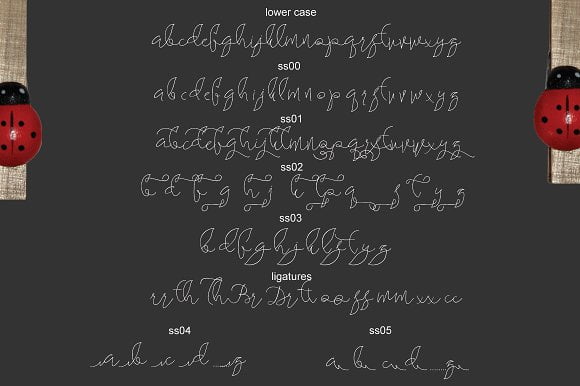 lower case
abcdefghijklmnopqrstuvwxyz
ss00
abcdefghijklmnopqrstuvwxyz
ss01
abcdefghijklmnopqrstuvwxyz
ss02
b d f g h j k l p q s t y z
ss03
b d f g h j k l z t y z
ligatures
rr th Th Br Dr tt oo ff mm xx cc
ss04 ss05
a b c d ......z a b c d ......z